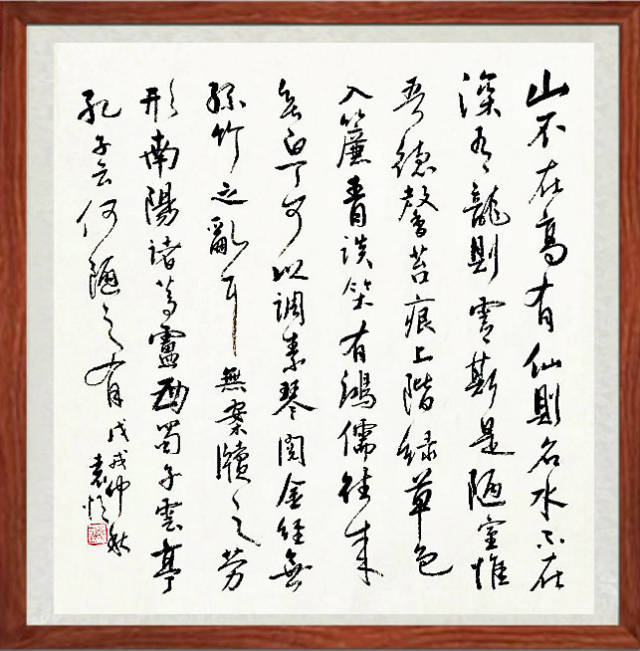 山不在高有仙則名水不在
深有龍則靈斯是陋室惟
吾德馨苔痕上階緑草色
入簾青談笑有鴻儒往來
無白丁可以調素琴閱金經無
絲竹之亂耳無案牘之勞
形南陽諸葛廬西蜀子雲亭
孔子云何陋之有戊戌仲秋
袁